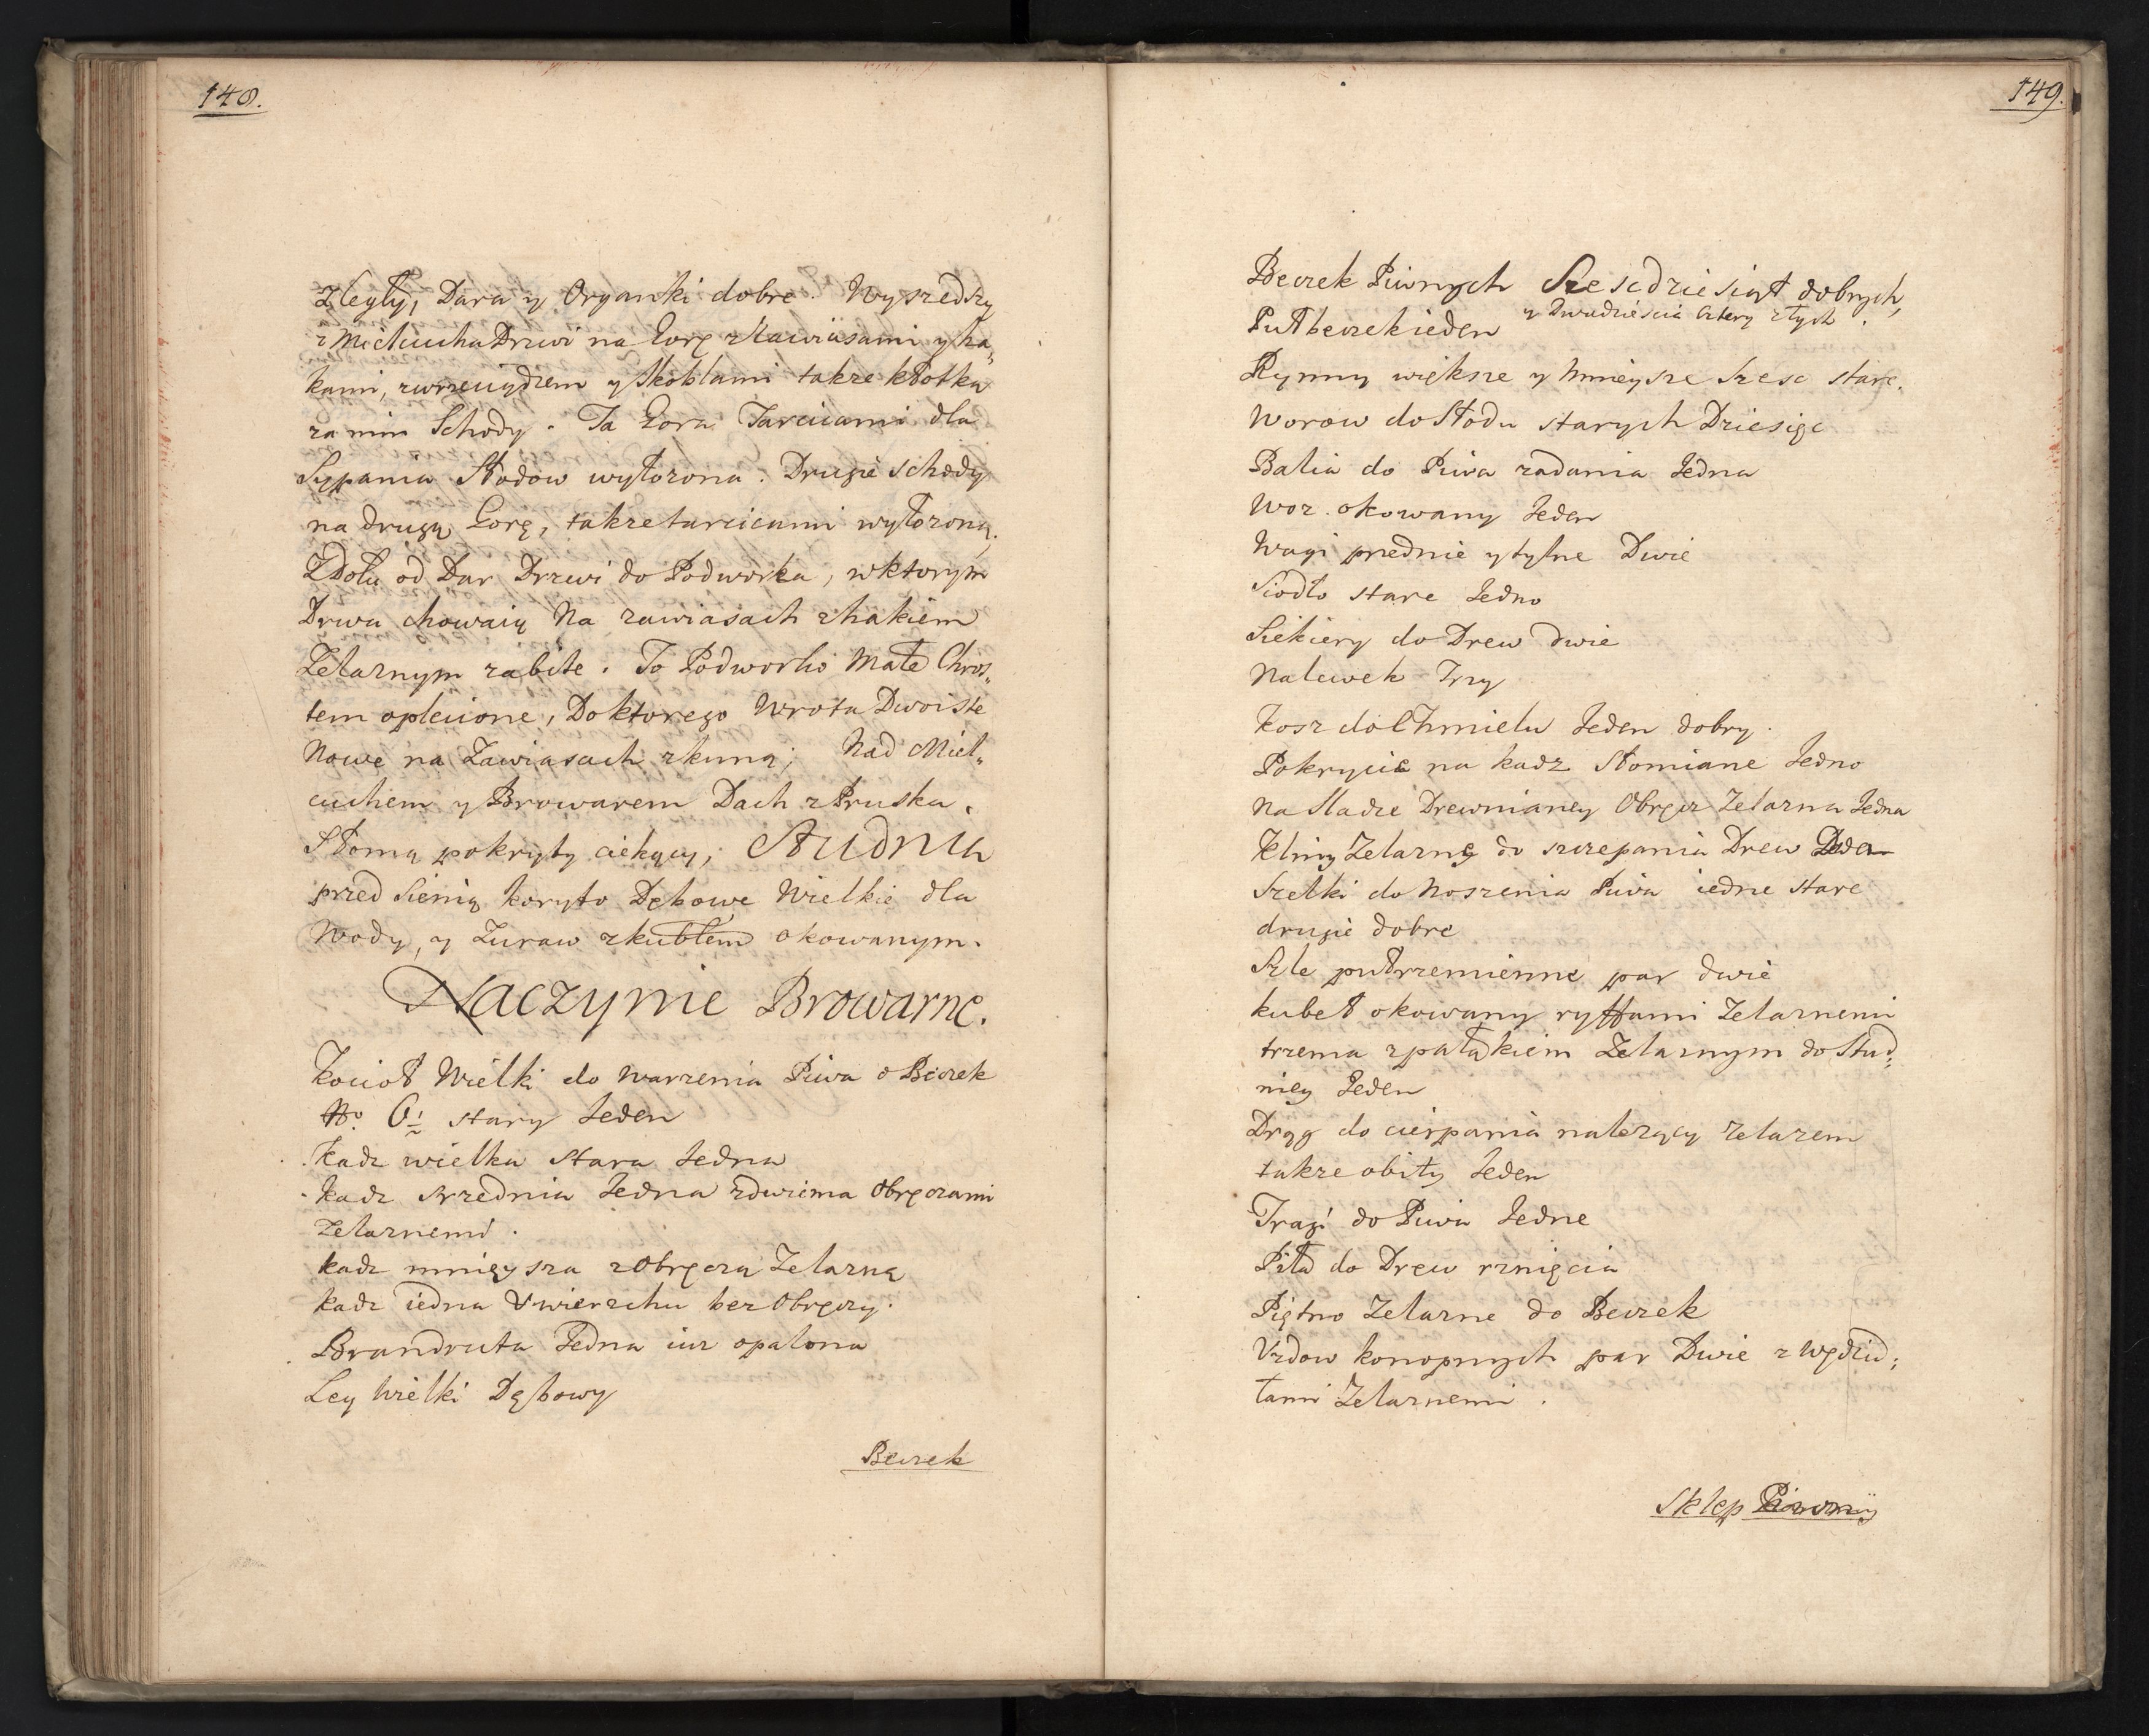 148.
Zległy, Dara y Organki dobre. Wyszedszy
z Mielcucha Drzwi na Gorę z Zawiasami y ha„
kami, zwrzeciądzem y Skoblami także kłotka
za nim Schody. Ta Gora Tarcicami dla
Sypania Słodow wyłożona. Drugie schody
na drugą Gorę, także tarcicami wyłożoną.
Z Dołu od Dar Drzwi do Podworka, w ktorym
Drwa chowaią Na zawiasach z hakiem
Żelaznym zabite. To Podworko Małe Chros„
tem oplecione, Do ktorego Wrota Dwoiste
Nowe na Zawiasach z kuną; Nad Miel„
cuchem y Browarem Dach z Pruska.
Słomą pokryty ciekący; Studnia
przed Sienią koryto Dębowe Wielkie dla
Wody, y Zuraw z kubłem okowanym.
Naczynie Browarne.
Kocioł Wielki do Warzenia Piwa o Beczek
No. 6 stary Jeden
Kadz wielka stara Jedna
Kadz srzednia Jedna z dwiema Obręczami
Zelaznemi.
Kadz mnieysza z Obręczą Zelazną
Kadz iedna Vwierzchu bez Obręczy.
Brandruta Jedna iuz opalona
Ley Wielki Dębowy
Beczek
149.
Beczek Piwnych Szescdziesiąt dobrych,
y Dwadzieścia Cztery złych.
Puł beczek ieden
Rynny większe y Mnieysze Szesc stare.
Worow do Słodu starych Dziesięc
Balia do Piwa zadania Jedna
Woz okowany Jeden
Wagi przednie y tylne Dwie
Siodło stare Jedno
Siekiery do Drew dwie
Nalewek Trzy
Kosz do Chmielu Jeden dobry.
Pokrycie na kadz Słomiane Jedno
Na Sladze Drewnianey Obręcz Zelazna Jedna
Kliny Zelazne do szczepania Drew Dwa
Szelki do Noszenia Piwa iedne stare
drugie dobre
Szle pułrzemienne par dwie
Kubeł okowany ryffami Zelaznemi
trzema z pałąkiem Zelaznym do Stud„
niey Jeden
Drąg do cierpania nalezący zelazem
także obity Jeden
Tragi do Piwa Jedne
Piła do Drew rznięcia
Piętno Zelazne do Beczek
Vzdow konopnych par Dwie z Wędzid„
łami Zelaznemi.
Sklep Piwny